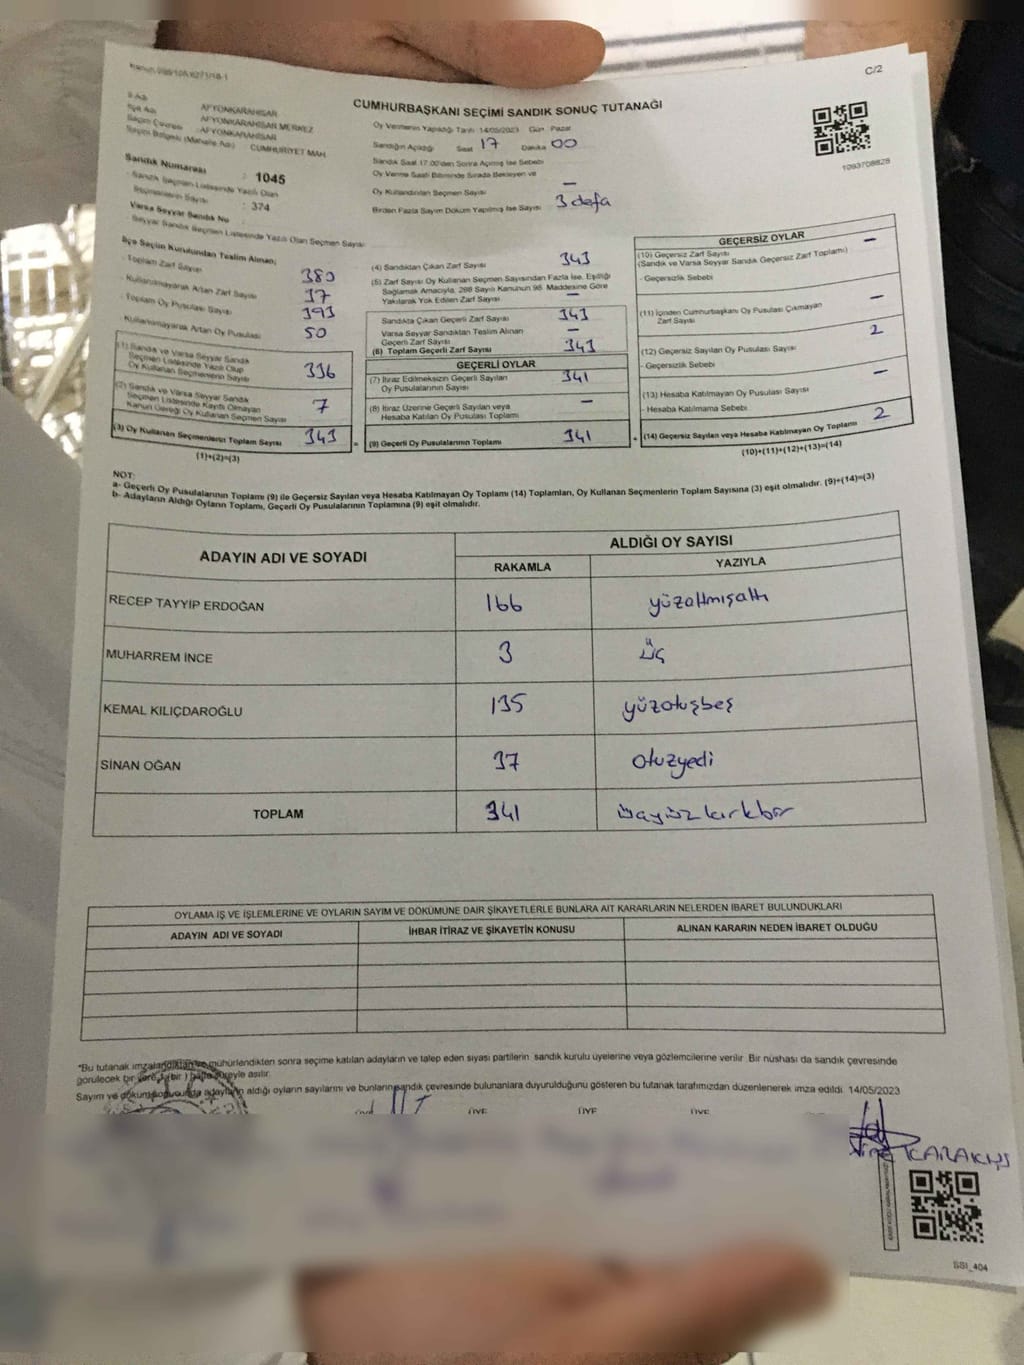 C/2
CUMHURBAŞKANI SEÇİMİ SANDIK SONUÇ TUTANAĞI
1093708828
İl Adı AFYONKARAHİSAR
İlçe Adı AFYONKARAHİSAR MERKEZ
Seçim Çevresi AFYONKARAHİSAR
Seçim Bölgesi (Mahalle Adı) CUMHURİYET MAH.
Sandık Numarası : 1045
- Sandık Seçmen Listesinde Yazılı Olan
Seçmenlerin Sayısı : 374
Varsa Seyyar Sandık No :
- Seyyar Sandık Seçmen Listesinde Yazılı Olan Seçmen Sayısı:
Oy Vermenin Yapıldığı Tarih 14/05/2023 Gün Pazar
Sandığın Açıldığı Saat 17 Dakika 00
Sandık Saat 17:00'den Sonra Açılmış İse Sebebi
Oy Verme Saati Bitiminde Sırada Bekleyen ve
Oy Kullandırılan Seçmen Sayısı —
Birden Fazla Sayım Döküm Yapılmış İse Sayısı 3 defa
İlçe Seçim Kurulundan Teslim Alınan;
- Toplam Zarf Sayısı 380
- Kullanılmayarak Artan Zarf Sayısı 37
- Toplam Oy Pusulası Sayısı 393
- Kullanılmayarak Artan Oy Pusulası 50
(1) Sandık ve Varsa Seyyar Sandık
Seçmen Listesinde Yazılı Olup
Oy Kullanan Seçmenlerin Sayısı 336
(2) Sandık ve Varsa Seyyar Sandık
Seçmen Listesinde Kayıtlı Olmayan
Kanun Gereği Oy Kullanan Seçmen Sayısı 7
(3) Oy Kullanan Seçmenlerin Toplam Sayısı 343
(1)+(2)=(3)
(4) Sandıktan Çıkan Zarf Sayısı 343
(5) Zarf Sayısı Oy Kullanan Seçmen Sayısından Fazla İse, Eşitliği
Sağlamak Amacıyla, 298 Sayılı Kanunun 98. Maddesine Göre
Yakılarak Yok Edilen Zarf Sayısı —
Sandıkta Çıkan Geçerli Zarf Sayısı 343
Varsa Seyyar Sandıktan Teslim Alınan
Geçerli Zarf Sayısı —
(6) Toplam Geçerli Zarf Sayısı 343
GEÇERLİ OYLAR
(7) İtiraz Edilmeksizin Geçerli Sayılan
Oy Pusulalarının Sayısı 341
(8) İtiraz Üzerine Geçerli Sayılan veya
Hesaba Katılan Oy Pusulası Toplamı —
= (9) Geçerli Oy Pusulalarının Toplamı 341
GEÇERSİZ OYLAR
(10) Geçersiz Zarf Sayısı —
(Sandık ve Varsa Seyyar Sandık Geçersiz Zarf Toplamı)
- Geçersizlik Sebebi
(11) İçinden Cumhurbaşkanı Oy Pusulası Çıkmayan
Zarf Sayısı —
(12) Geçersiz Sayılan Oy Pusulası Sayısı 2
- Geçersizlik Sebebi
(13) Hesaba Katılmayan Oy Pusulası Sayısı —
- Hesaba Katılmama Sebebi
+ (14) Geçersiz Sayılan veya Hesaba Katılmayan Oy Toplamı 2
(10)+(11)+(12)+(13)=(14)
NOT:
a- Geçerli Oy Pusulalarının Toplamı (9) ile Geçersiz Sayılan veya Hesaba Katılmayan Oy Toplamı (14) Toplamları, Oy Kullanan Seçmenlerin Toplam Sayısına (3) eşit olmalıdır. (9)+(14)=(3)
b- Adayların Aldığı Oyların Toplamı, Geçerli Oy Pusulalarının Toplamına (9) eşit olmalıdır.
ADAYIN ADI VE SOYADI
ALDIĞI OY SAYISI
RAKAMLA YAZIYLA
RECEP TAYYİP ERDOĞAN 166 yüzaltmışaltı
MUHARREM İNCE 3 üç
KEMAL KILIÇDAROĞLU 135 yüzotuzbeş
SİNAN OĞAN 37 otuzyedi
TOPLAM 341 üçyüzkırkbir
OYLAMA İŞ VE İŞLEMLERİNE VE OYLARIN SAYIM VE DÖKÜMÜNE DAİR ŞİKAYETLERLE BUNLARA AİT KARARLARIN NELERDEN İBARET BULUNDUKLARI
ADAYIN ADI VE SOYADI İHBAR İTİRAZ VE ŞİKAYETİN KONUSU ALINAN KARARIN NEDEN İBARET OLDUĞU
*Bu tutanak imzalandıktan ve mühürlendikten sonra seçime katılan adayların ve talep eden siyasi partilerin sandık kurulu üyelerine veya gözlemcilerine verilir. Bir nüshası da sandık çevresinde
görülecek bir yere 1 (bir) hafta süreyle asılır.
Sayım ve döküm sonucunda adayların aldığı oyların sayılarını ve bunların sandık çevresinde bulunanlara duyurulduğunu gösteren bu tutanak tarafımızdan düzenlenerek imza edildi. 14/05/2023
ÜYE ÜYE ÜYE
KARAKUŞ
SSI_404